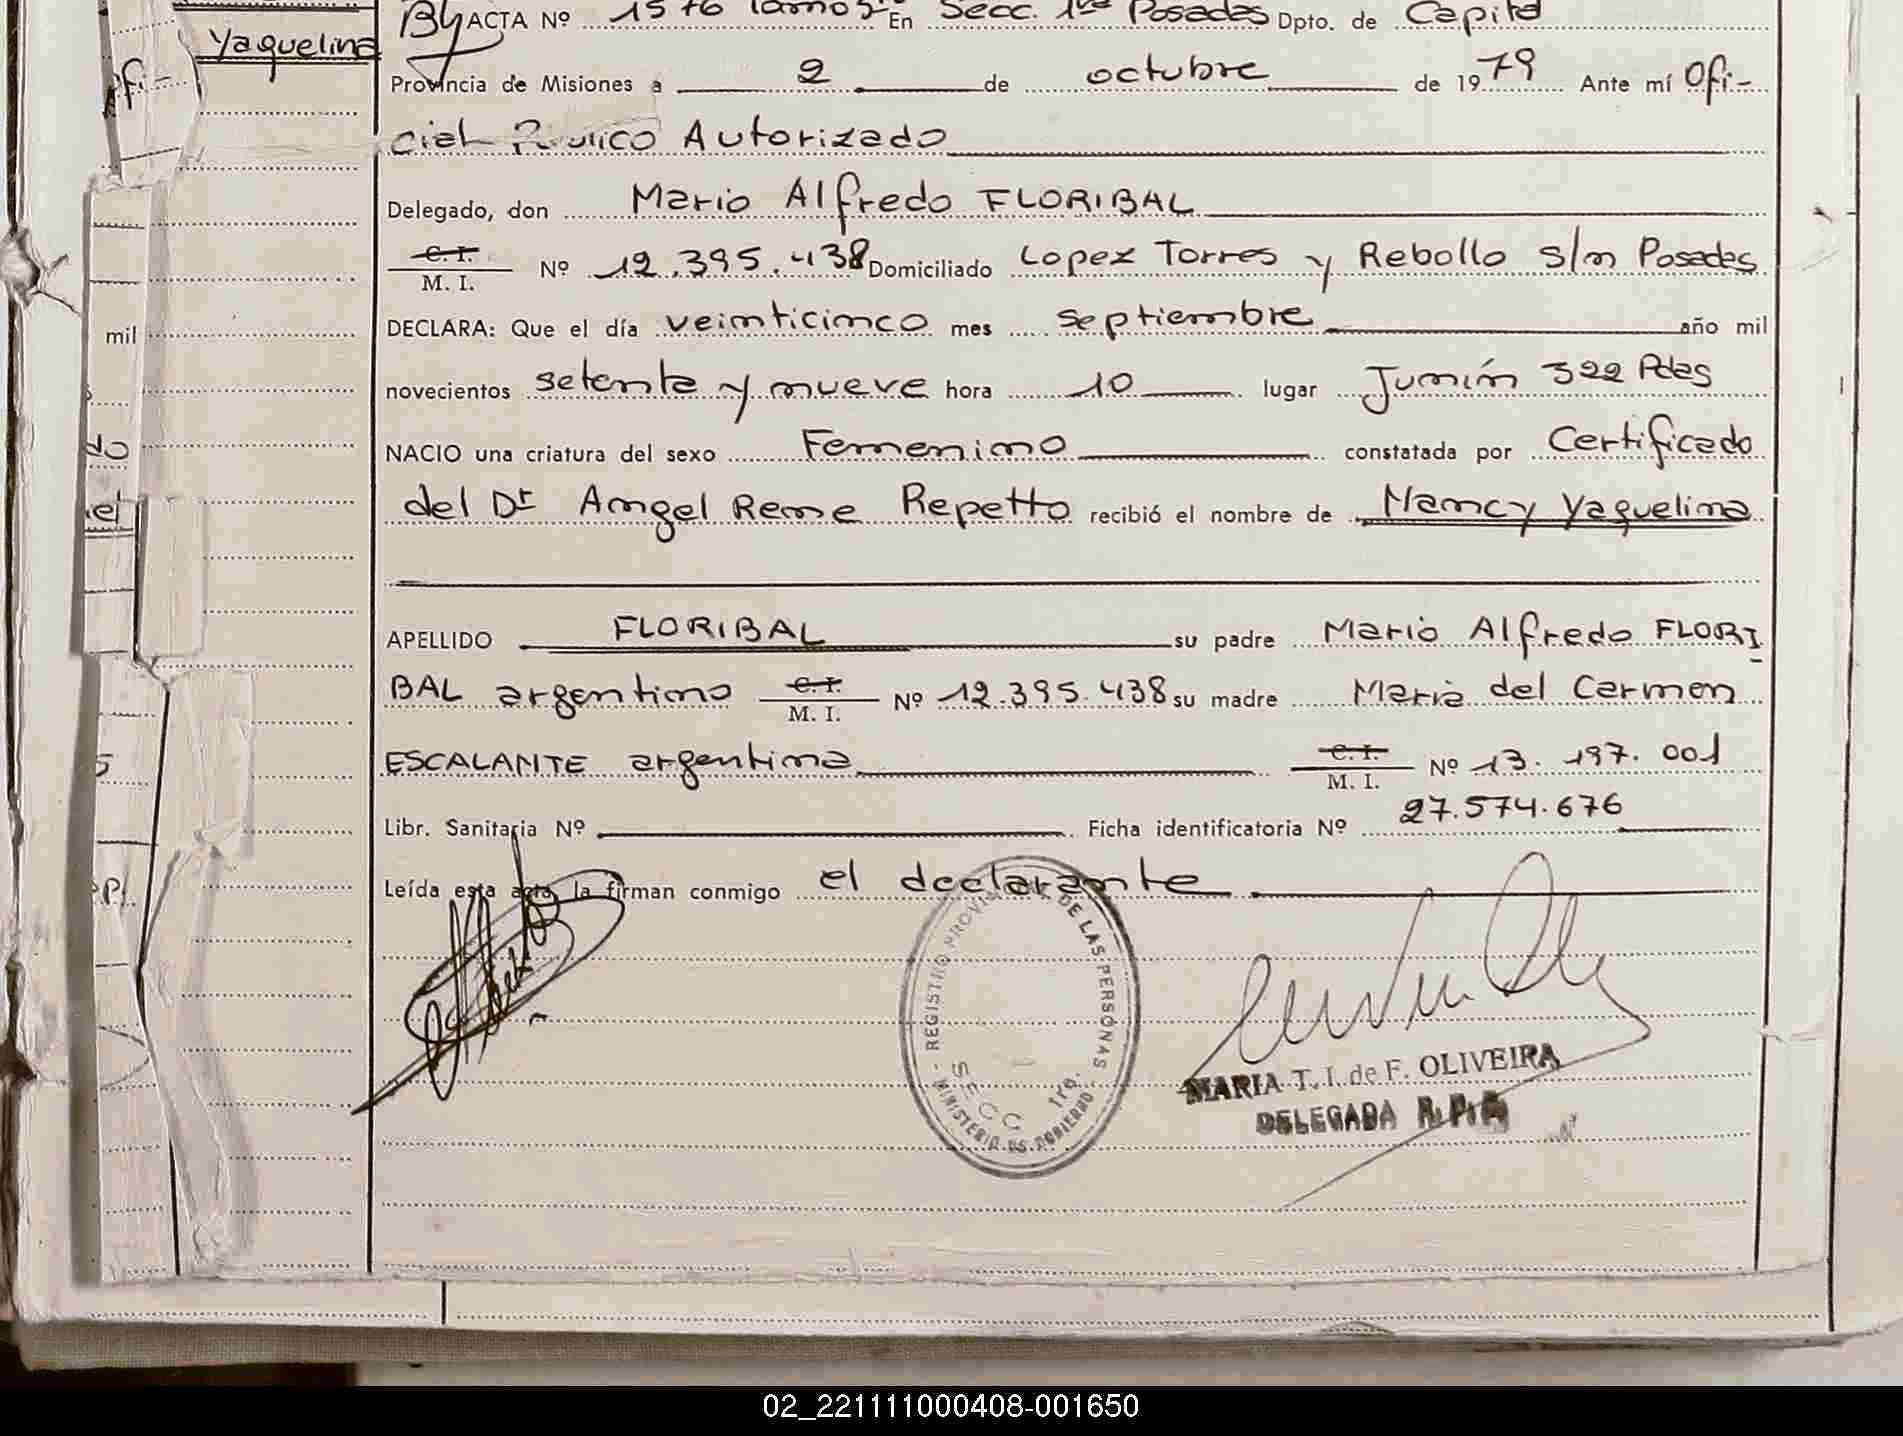 Yaquelina
ACTA Nº 1576 Tomo 5º En Secc. 1ra Posadas Dpto. de Capital
Provincia de Misiones a 2 de octubre de 1979 Ante mí Ofi-
cial Público Autorizado
Delegado, don Mario Alfredo FLORIBAL
C.I.
M. I. Nº 12.395.438 Domiciliado Lopez Torres y Rebollo s/n Posadas
DECLARA: Que el día veinticinco mes septiembre año mil
novecientos setenta y nueve hora 10 lugar Junín 322 Pdas
NACIO una criatura del sexo Femenino constatada por Certificado
del Dr Angel Rene Repetto recibió el nombre de Nancy Yaquelina
APELLIDO FLORIBAL su padre Mario Alfredo FLORI
BAL argentino C.I. M. I. Nº 12.395.438 su madre Maria del Carmen
ESCALANTE argentina C.I. M. I. Nº 13.197.001
Libr. Sanitaria Nº Ficha identificatoria Nº 27.574.676
Leída esta acta, la firman conmigo el declarante
REGISTRO PROVINCIAL DE LAS PERSONAS
SECC 1ra.
- MINISTERIO DE GOBIERNO -
MARIA T. I. de F. OLIVEIRA
DELEGADA R.P.P.
mil
do
el
5
02_221111000408-001650